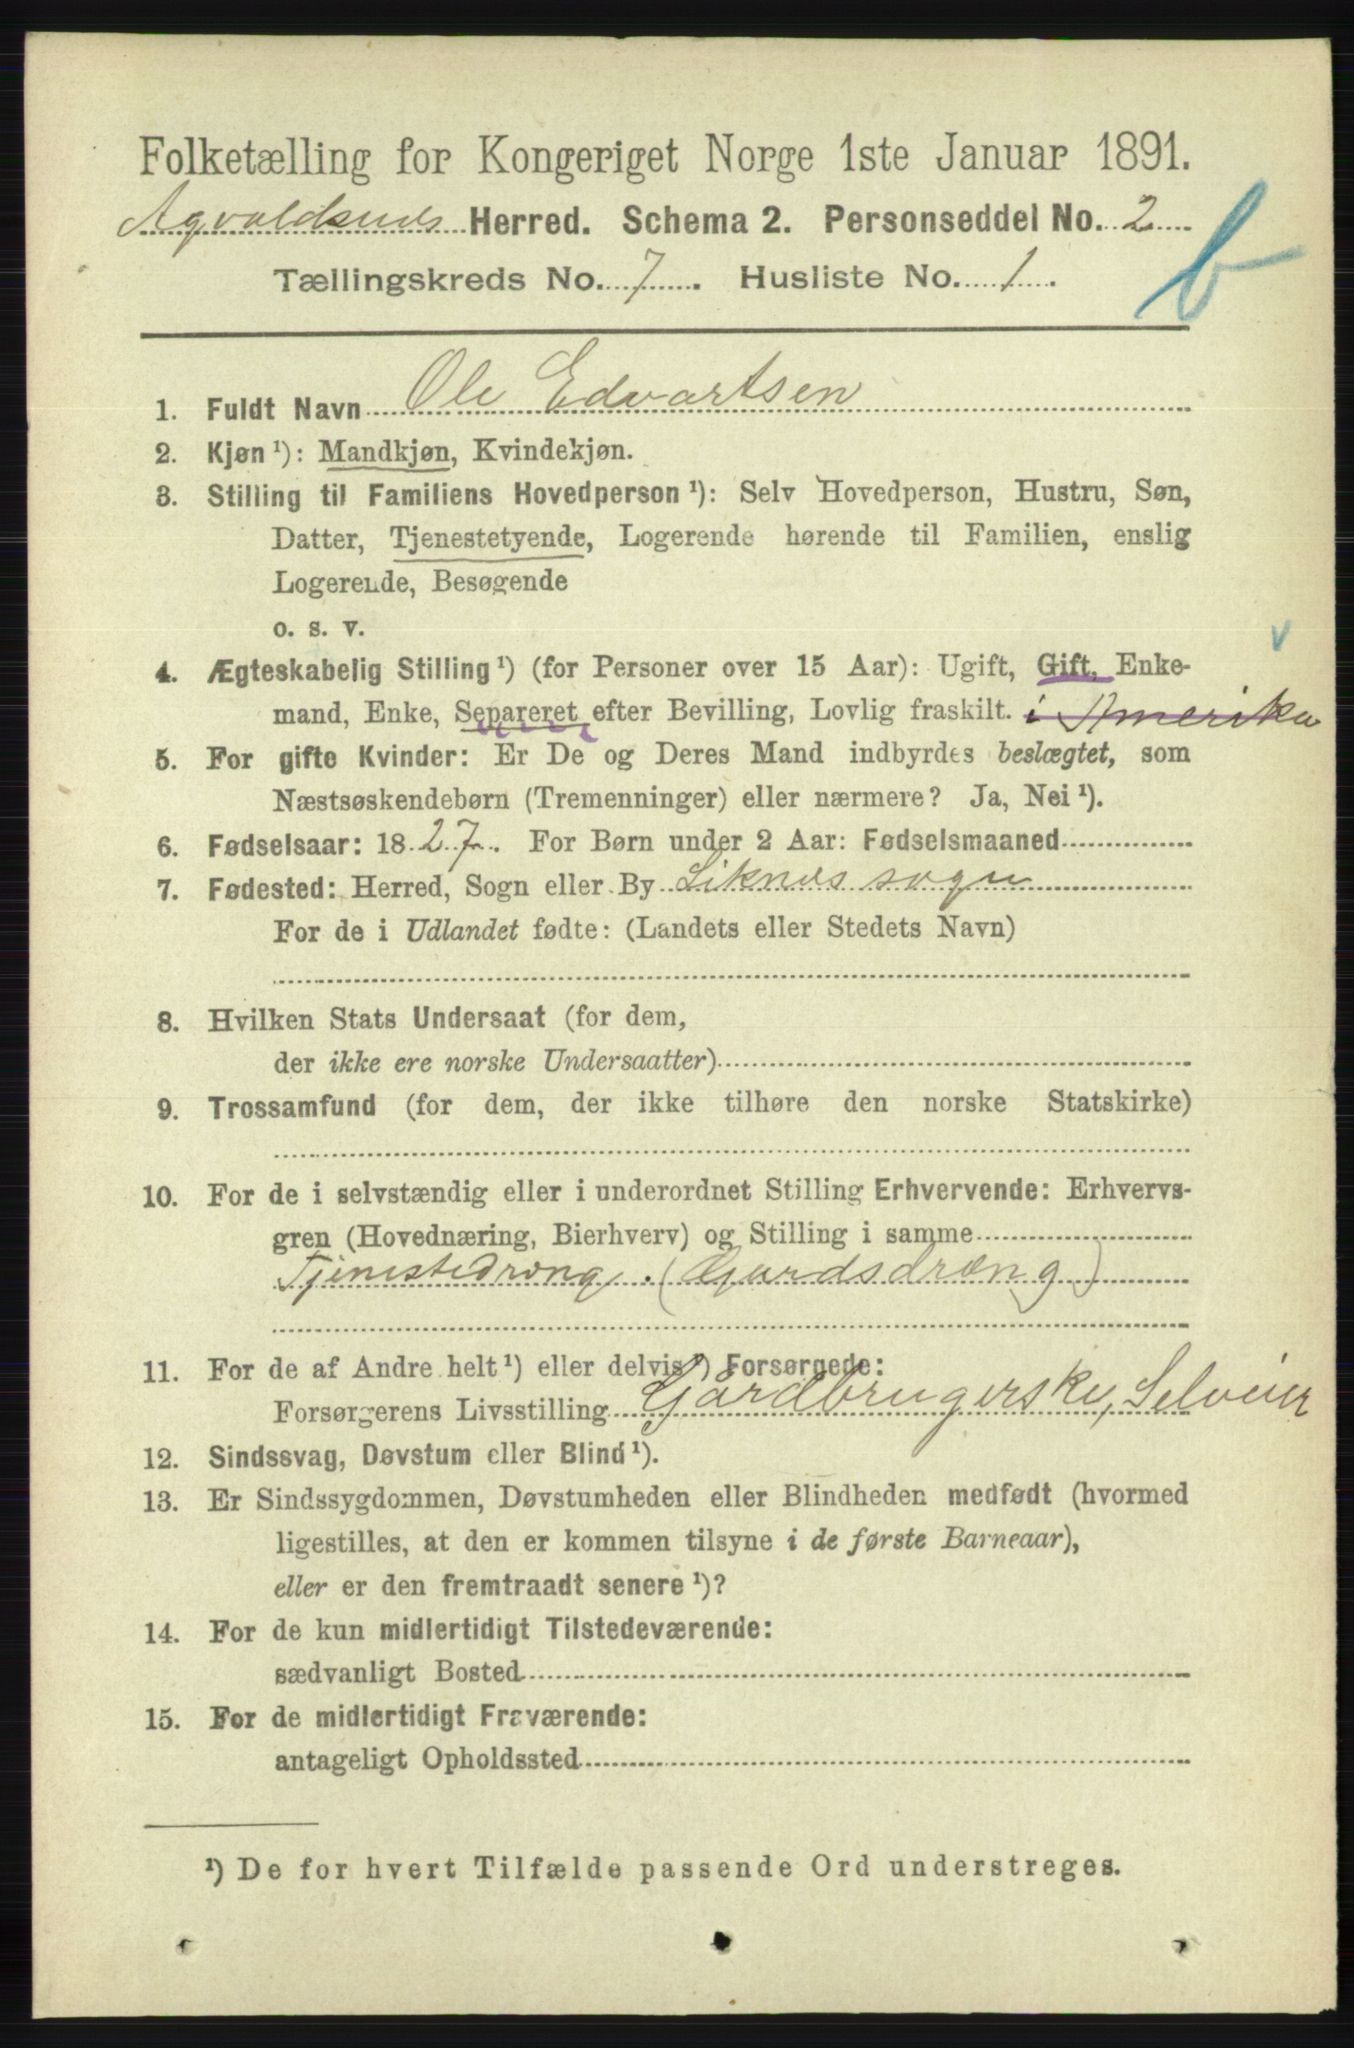 Folketælling for Kongeriget Norge 1ste Januar 1891.
Agvaldsnds Herred. Schema 2. Personseddel No. 2
b
Tællingskreds No. 7. Husliste No. 1.
1. Fuldt Navn Ole Edvartsen
2. Kjøn ¹): Mandkjøn, Kvindekjøn.
3. Stilling til Familiens Hovedperson ¹): Selv Hovedperson, Hustru, Søn,
Datter, Tjenestetyende, Logerende hørende til Familien, enslig
Logerende, Besøgende
o. s. v.
v
4. Ægteskabelig Stilling ¹) (for Personer over 15 Aar): Ugift, Gift, Enke-
mand, Enke, Separeret efter Bevilling, Lovlig fraskilt. i Amerika
5. For gifte Kvinder: Er De og Deres Mand indbyrdes beslægtet, som
Næstsøskendebørn (Tremenninger) eller nærmere? Ja, Nei ¹).
6. Fødselsaar: 1827. For Børn under 2 Aar: Fødselsmaaned
7. Fødested: Herred, Sogn eller By Liknes sogn
For de i Udlandet fødte: (Landets eller Stedets Navn)
8. Hvilken Stats Undersaat (for dem,
der ikke ere norske Undersaatter)
9. Trossamfund (for dem, der ikke tilhøre den norske Statskirke)
10. For de i selvstændig eller i underordnet Stilling Erhvervende: Erhvervs-
gren (Hovednæring, Bierhverv) og Stilling i samme
Tjenestedrong. (Gaardsdræng)
11. For de af Andre helt ¹) eller delvis ¹) Forsørgede:
Forsørgerens Livsstilling Gårdbrugerske, Selveier
12. Sindssvag, Døvstum eller Blind ¹).
13. Er Sindssygdommen, Døvstumheden eller Blindheden medfødt (hvormed
ligestilles, at den er kommen tilsyne i de første Barneaar),
eller er den fremtraadt senere ¹)?
14. For de kun midlertidigt Tilstedeværende:
sædvanligt Bosted
15. For de midlertidigt Fraværende:
antageligt Opholdssted
¹) De for hvert Tilfælde passende Ord understreges.